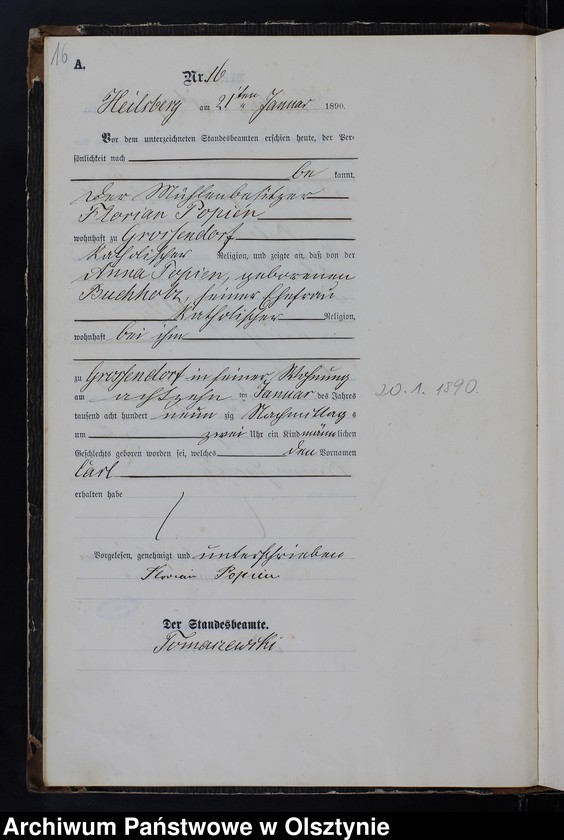 16
A.
Nr. 16
Heilsberg am 21ten Januar 1890.
Vor dem unterzeichneten Standesbeamten erschien heute, der Per-
sönlichkeit nach
be kannt,
der Mühlenbesitzer
Florian Popien
wohnhaft zu Grossendorf
katholischer Religion, und zeigte an, daß von der
Anna Popien, geborenen
Buchholz, seiner Ehefrau
katholischer Religion,
wohnhaft bei ihm
zu Grossendorf in seiner Wohnung
am achtzehn ten Januar des Jahres
tausend acht hundert neun zig Nachmittag s
um zwei Uhr ein Kind männ lichen
Geschlechts geboren worden sei, welches den Vornamen
Carl
erhalten habe
20.1.1890.
Vorgelesen, genehmigt und unterschrieben
Florian Popien
Der Standesbeamte.
Tomaszewski
Archiwum Państwowe w Olsztynie